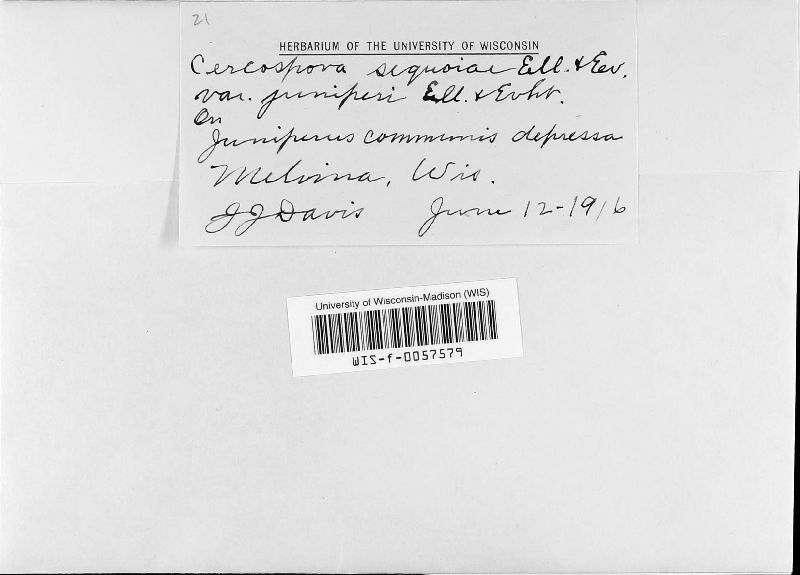 21
HERBARIUM OF THE UNIVERSITY OF WISCONSIN
Cercospora sequoiae Ell. & Ev.
var. juniperi Ell. & Evht.
On
Juniperus communis depressa
Melvina, Wis.
JJ Davis June 12-1916
University of Wisconsin-Madison (WIS)
WIS-f-0057579